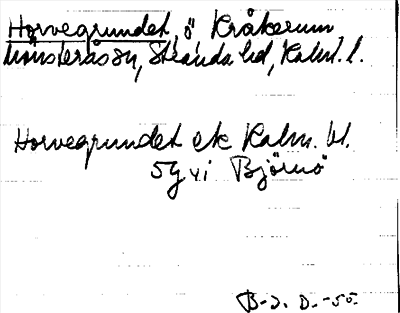 Horvegrundet, ö Kråkerum
Mönsterås sn, Stranda hd, Kalm. l.
Horvegrundet ek Kalm. bl.
59 vi Björnö
B-J. D. -55.